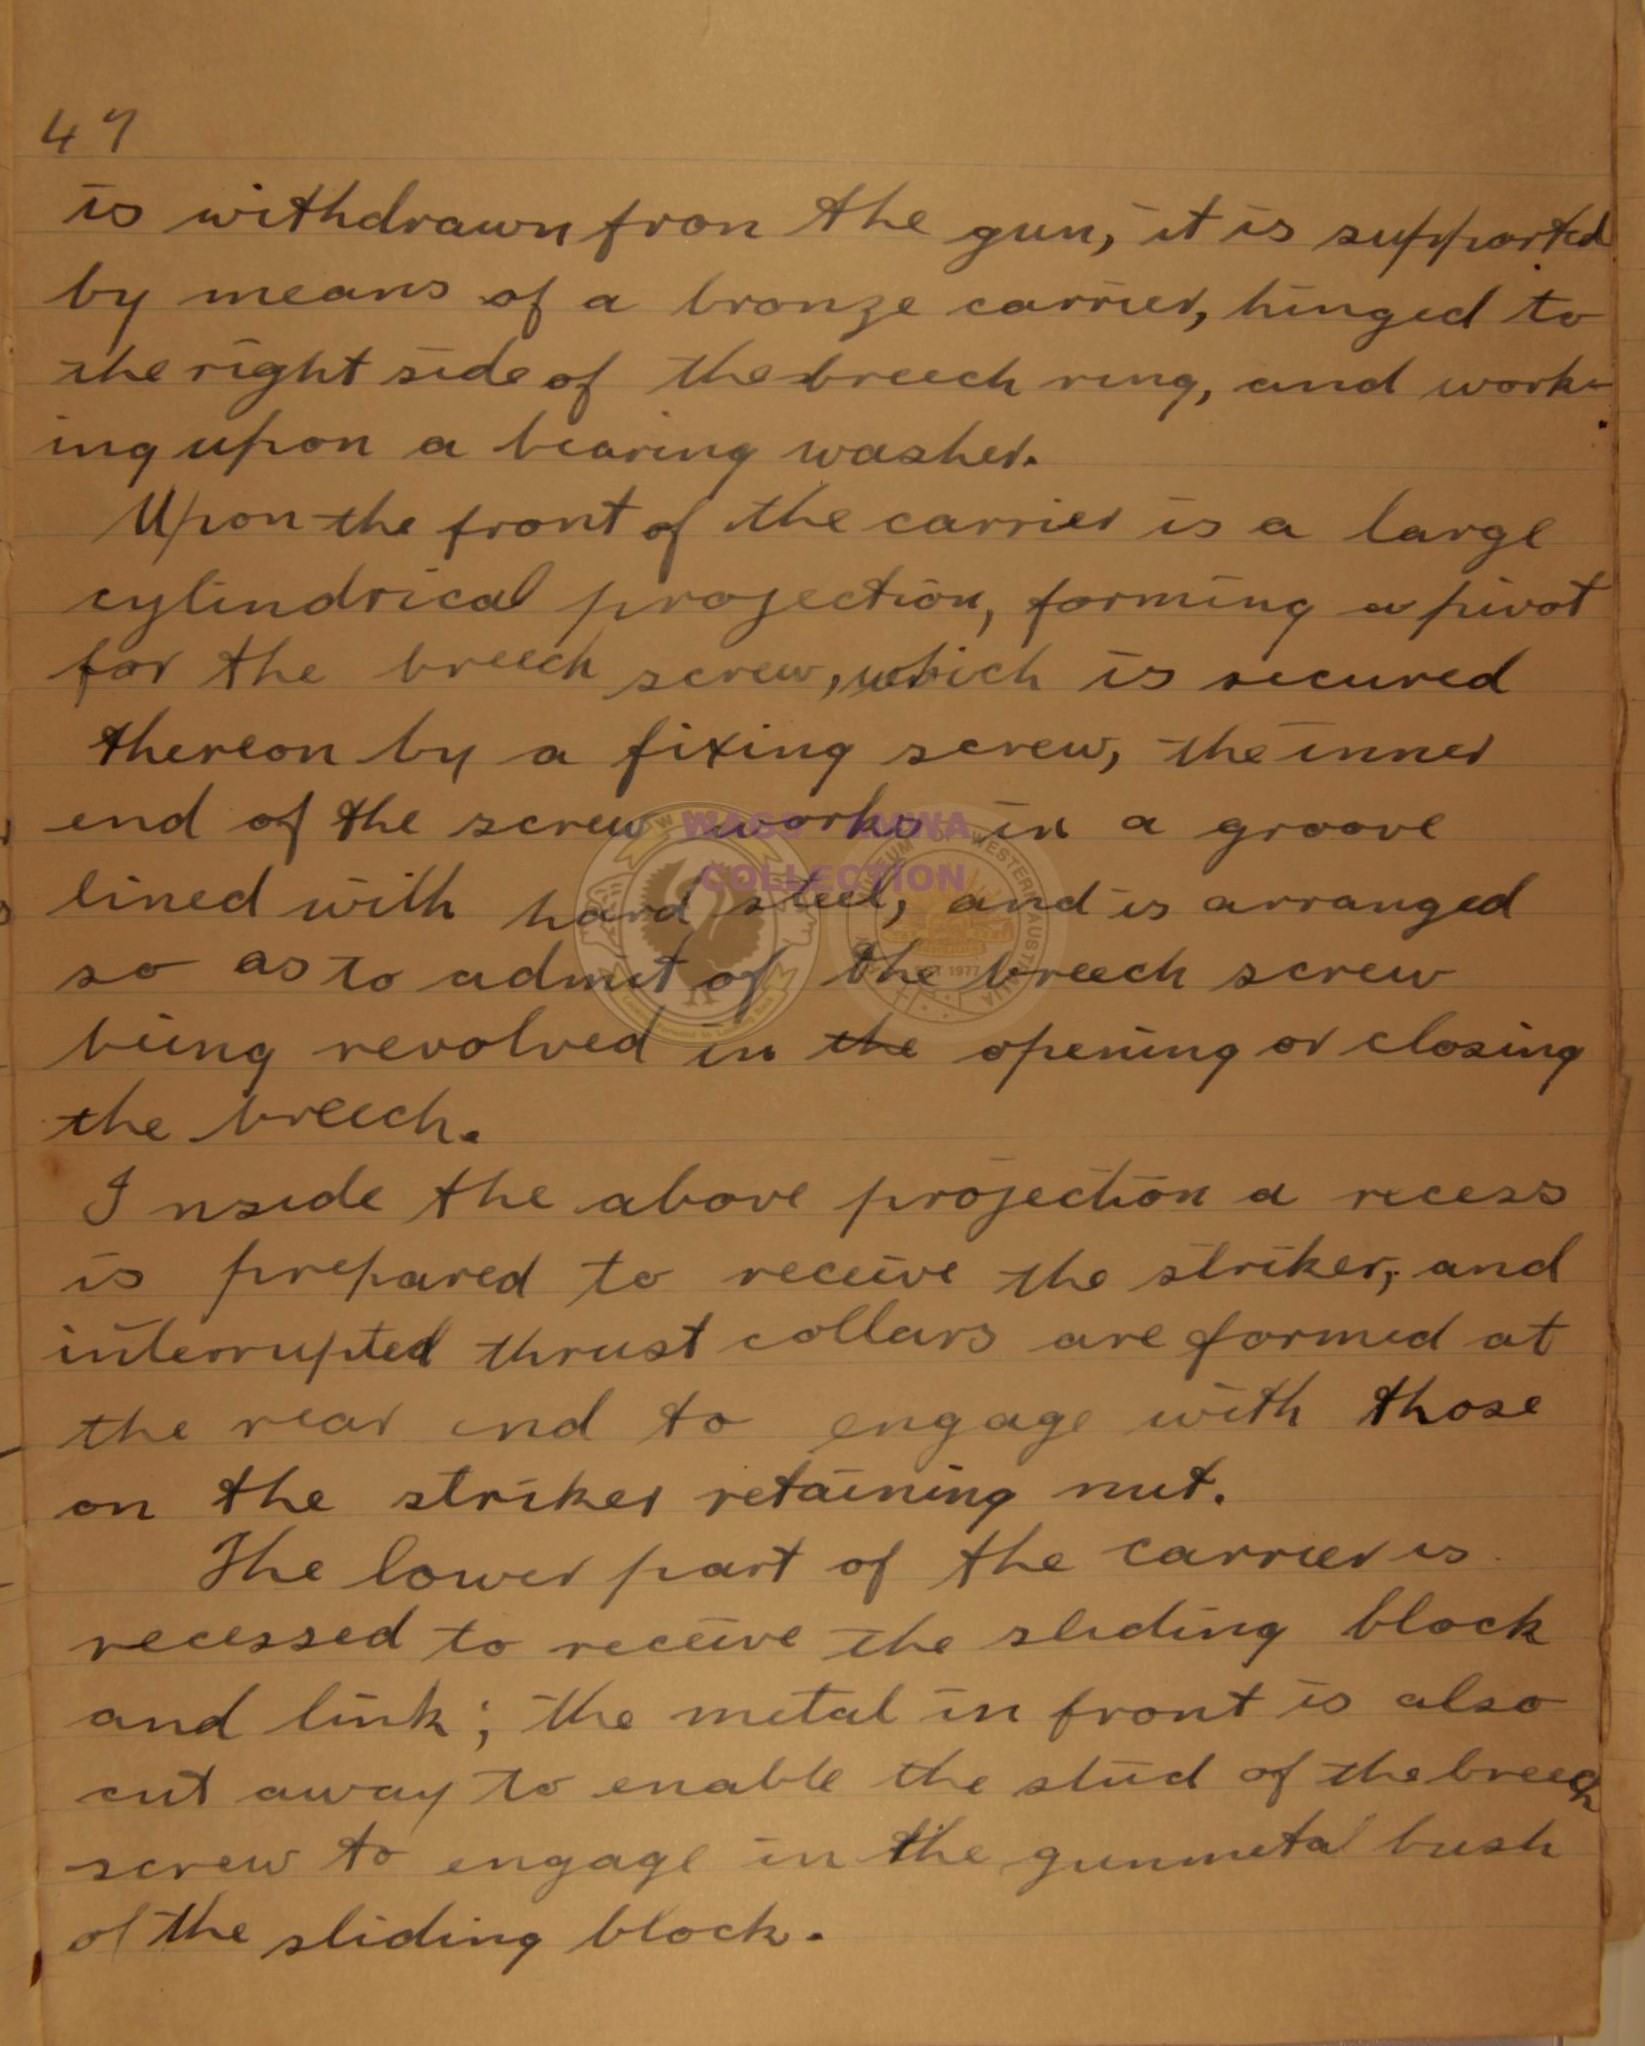 47
is withdrawn fron the gun, it is supported
by means of a bronze carrier, hinged to
the right side of the breech ring, and work-
ing upon a bearing washer.
Upon the front of the carrier is a large
cylindrical projection, forming a pivot
for the breech screw, which is secured
thereon by a fixing screw, the inner
end of the screw works in a groove
lined with hard steel, and is arranged
so as to admit of the breech screw
being revolved in the opening or closing
the breech.
Inside the above projection a recess
is prepared to receive the striker, and
interrupted thrust collars are formed at
the rear end to engage with those
on the striker retaining nut.
The lower part of the carrier is
recessed to receive the sliding block
and link; the metal in front is also
cut away to enable the stud of the breech
screw to engage in the gunmetal bush
of the sliding block.
COLLECTION
WESTERN AUSTRALIA
1977